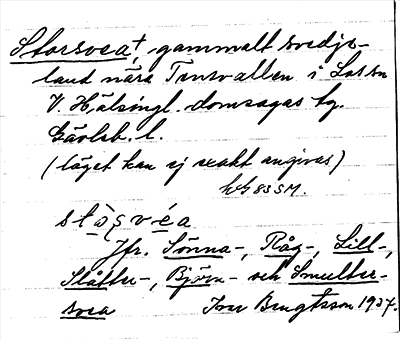 Storsvea†, gammalt svedje-
land nära Tensvallen i Los sn
V. Hälsingl. domsagas tg.
Gävleb. l.
(läget kan ej exakt angivas)
83 SM.
Jfr. Sönna-, Råg-, Lill-,
Slåtter-, Björn- och Smulter-
svea Ivar Bengtsson 1937.